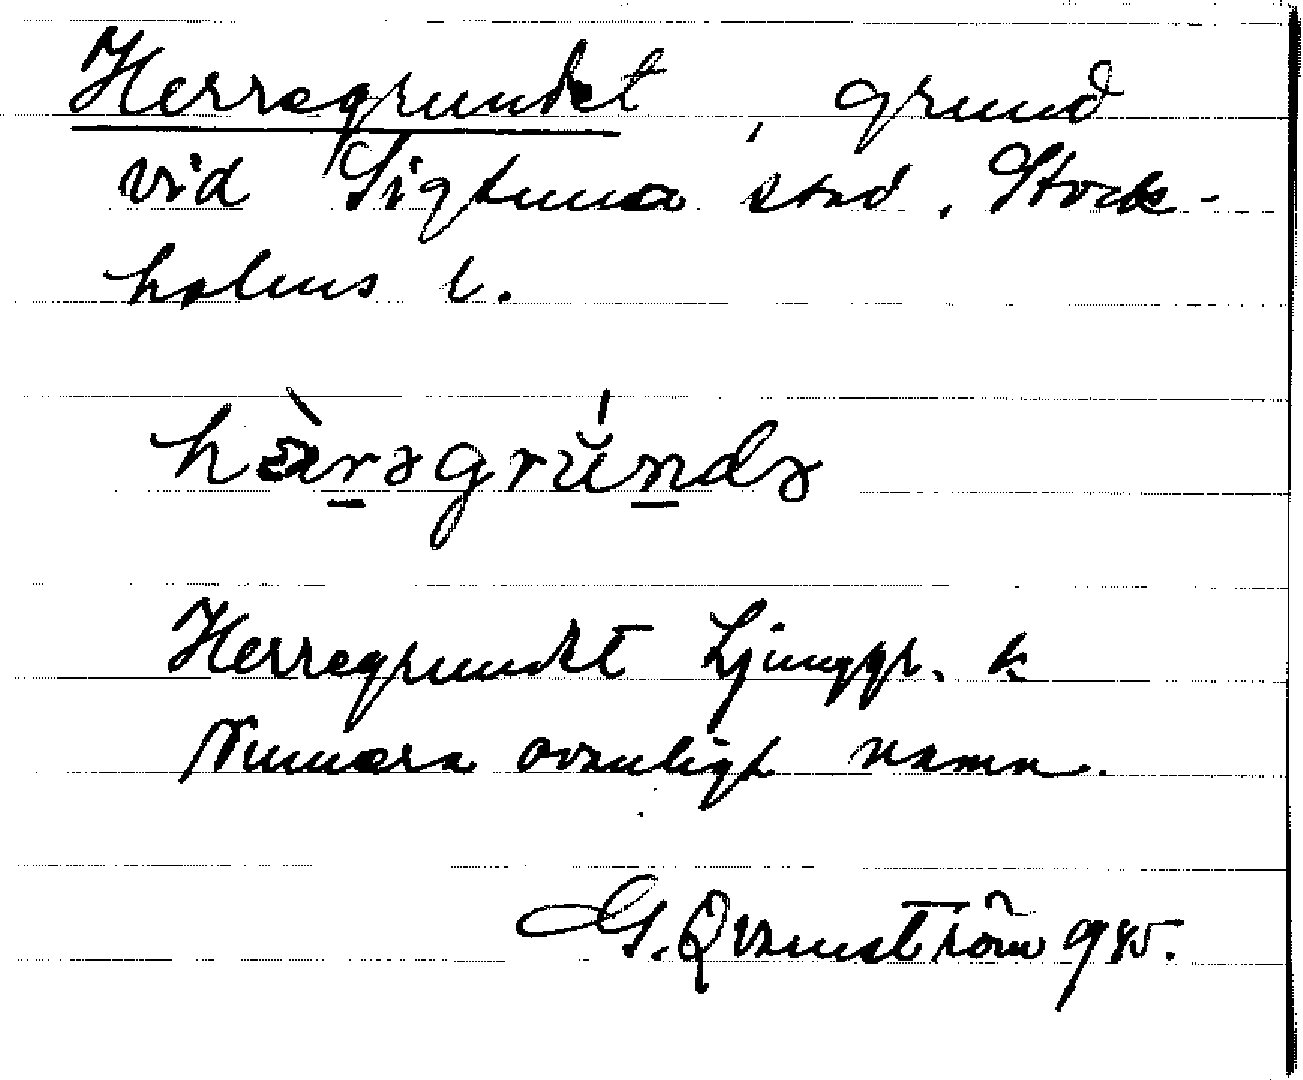 Herregrundet, grund
vid Sigtuna stad, Stock-
holms l.
hàrəgrúndə
Herregrundet Ljunggr. k
Numera ovanligt namn.
G. Qvarnström 1945.